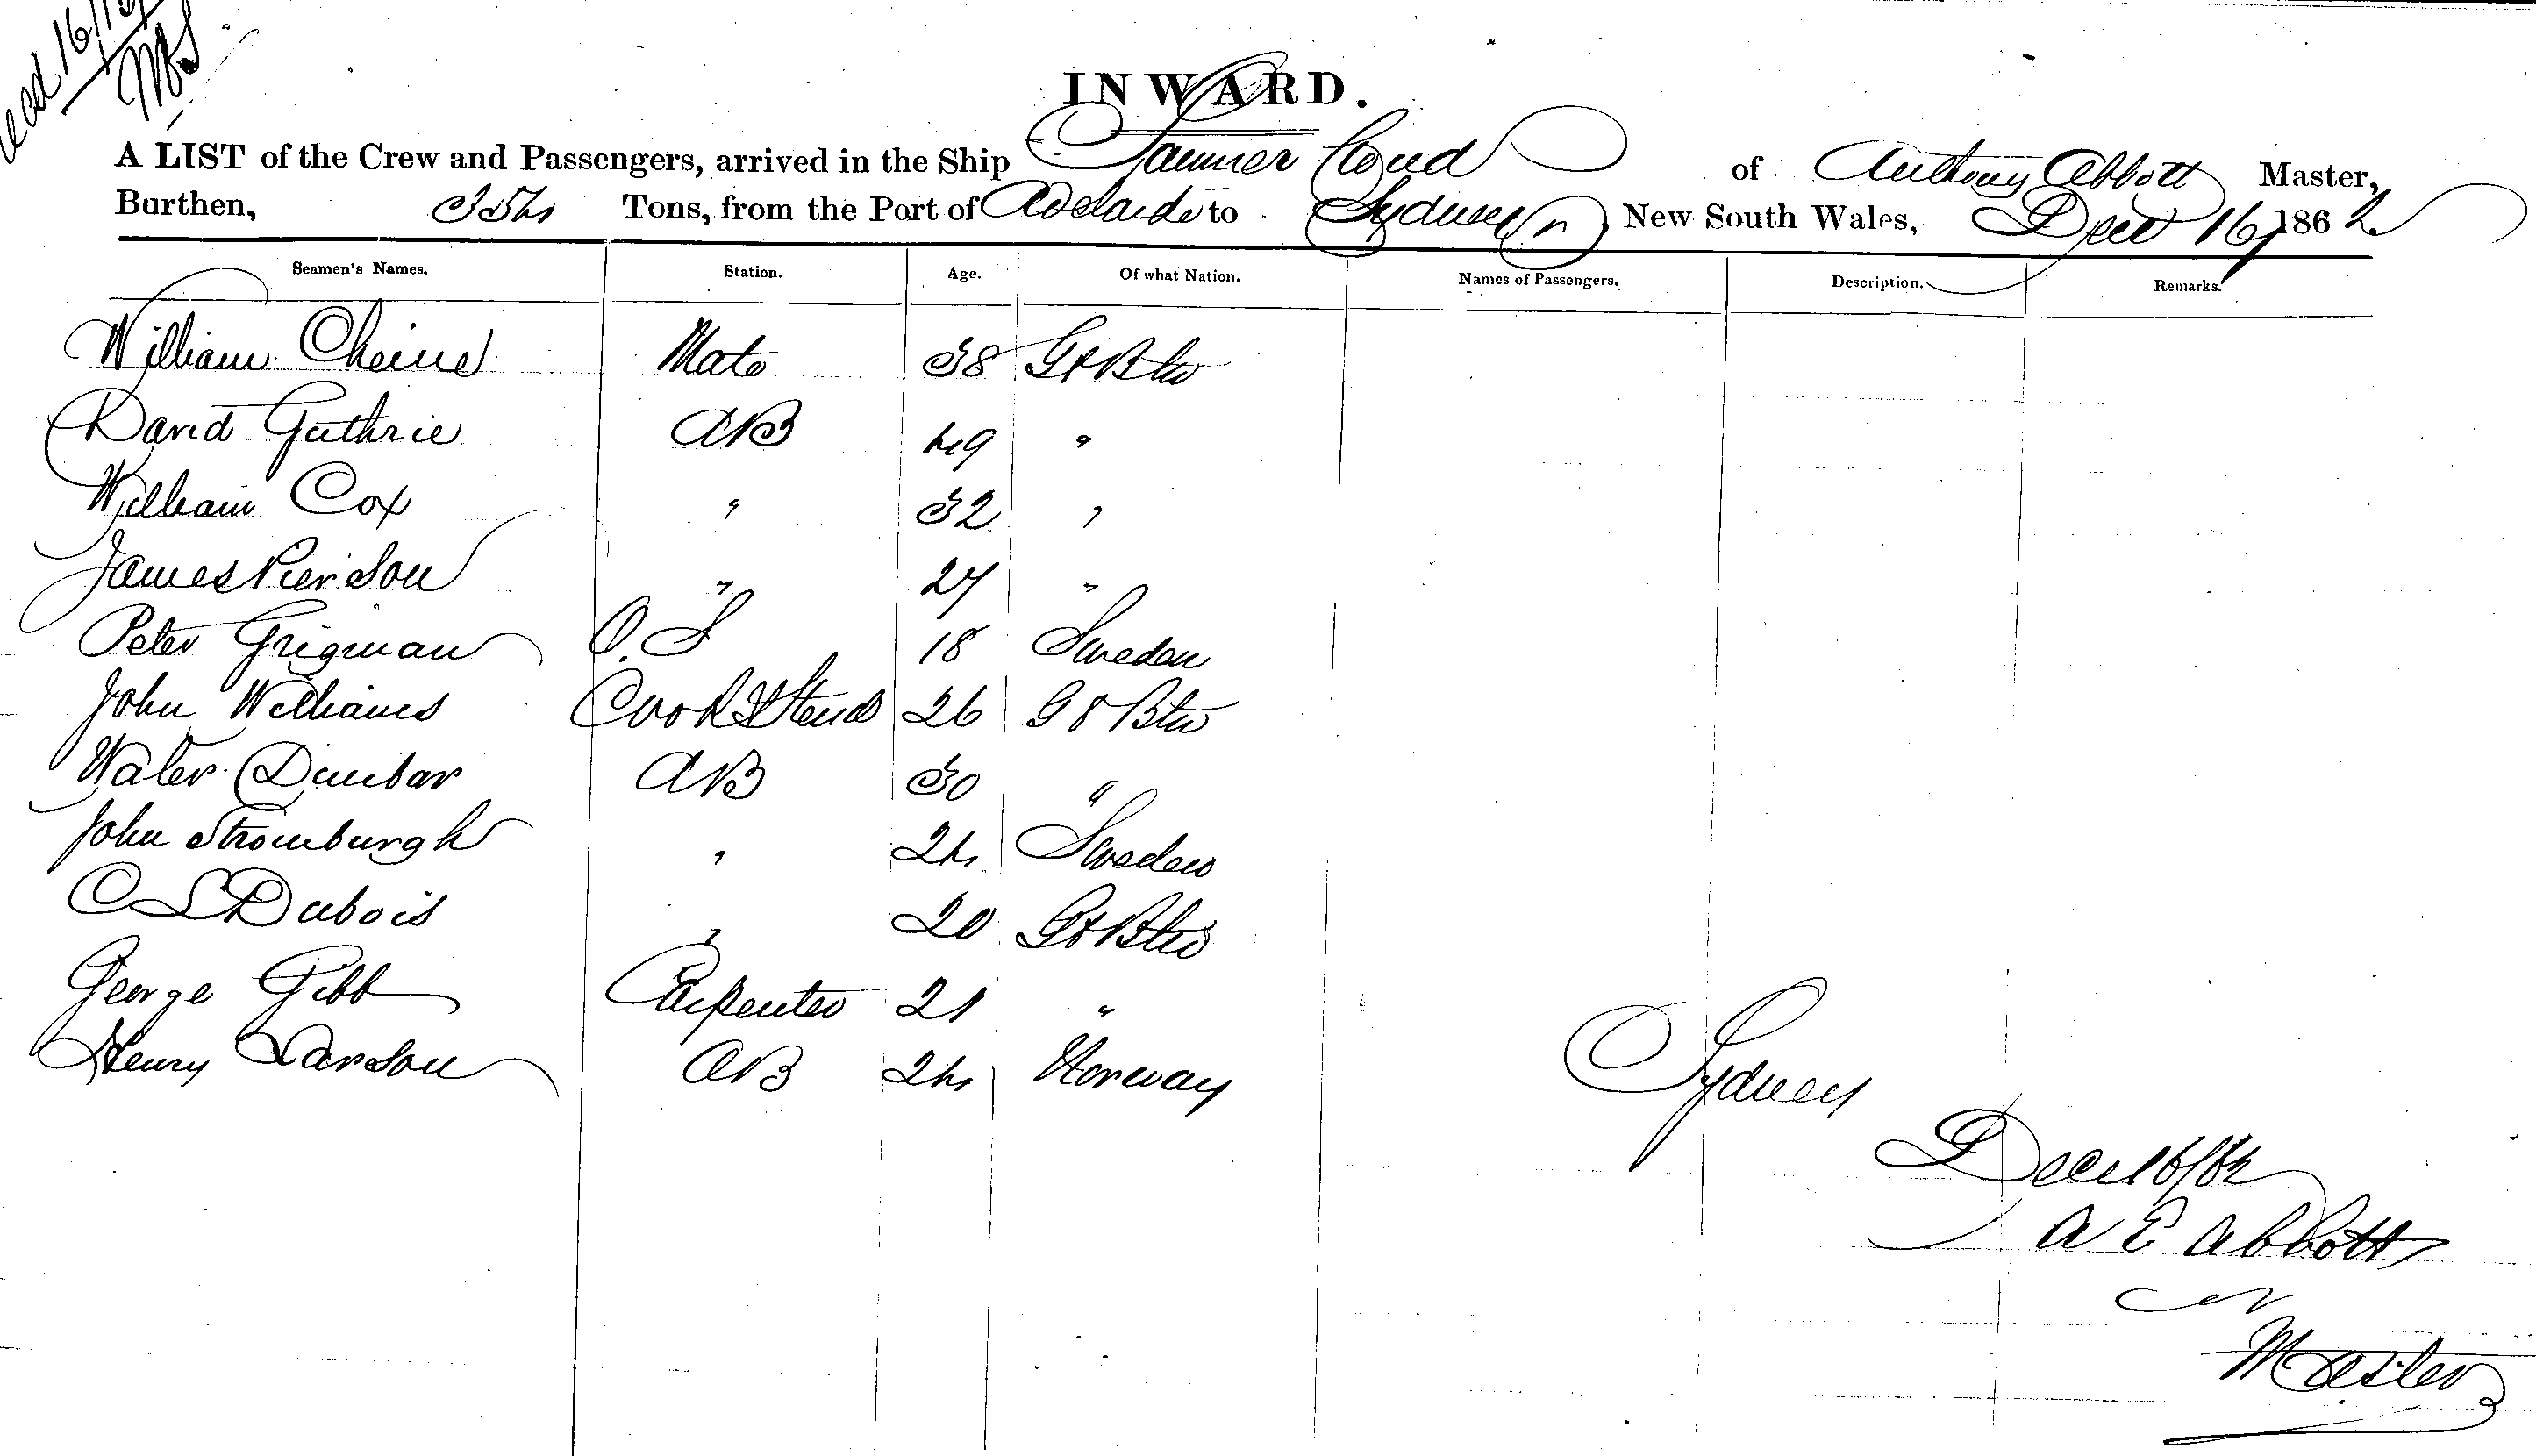 INWARD.
A LIST of the Crew and Passengers, arrived in the Ship of Anthony Abbott Master,
Burthen, 354 Tons, from the Port of Adelaide to Sydney New South Wales, Decr 16 1862
Seamen's Names. Station. Age. Of what Nation. Names of Passengers. Description. Remarks.
William Cheine Mate 38 Gt Btn
David Guthrie AB 49 "
William Cox " 32 "
James Pierson " 27 "
Peter Grigman O.S 18 Sweden
John Williams Cook & Steud 26 Gt Btn
Water Dunbar AB 30 "
John Stromburgh " 24 Sweden
C S Dubois " 20 Gt Btn
George Gibb Carpenter 21 "
Henry Larson AB 24 Norway
Sydney
Decr 16/62
A E Abbott
Master